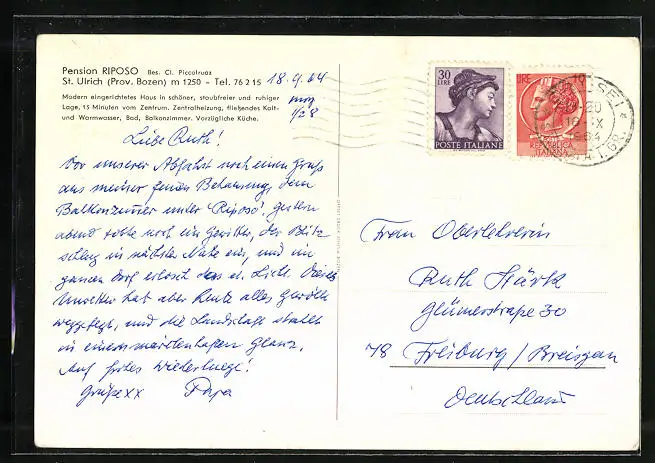 Pension RIPOSO Bes. Cl. Piccolruaz
St. Ulrich (Prov. Bozen) m 1250 - Tel. 76 2 15
Modern eingerichtetes Haus in schöner, staubfreier und ruhiger
Lage, 15 Minuten vom Zentrum. Zentralheizung, fließendes Kalt-
und Warmwasser, Bad, Balkonzimmer. Vorzügliche Küche.
18.9.64
Liebe Ruth!
Vor unserer Abfahrt noch einen Gruß
aus meiner Behausung, dem
Balkonzimmer unter "Riposo". Gestern
abend tobte noch ein Gewitter, der Blitz
schlug in nächster Nähe ein, und im
ganzen Dorf erlosch das el. Licht. Dieses
Unwetter hat aber heute alles Gewölk
weggefegt, und die Landschaft strahlt
in einem märchenhaften Glanz.
Auf frohes Wiedersehen!
Grüße xx Papa
30
LIRE
POSTE ITALIANE
LIRE
REPUBBLICA
ITALIANA
1964
Frau Oberlehrerin
Ruth Härk
Glümerstraße 30
78 Freiburg/Breisgau
Deutschland